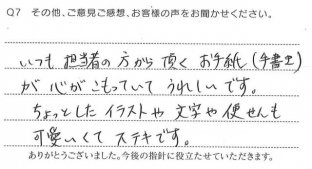 Q7 その他、ご意見ご感想、お客様の声をお聞かせください。
いつも担当者の方から頂くお手紙(手書き)
が心がこもっていてうれしいです。
ちょっとしたイラストや文字や便せんも
可愛いくてステキです。
ありがとうございました。今後の指針に役立たせていただきます。